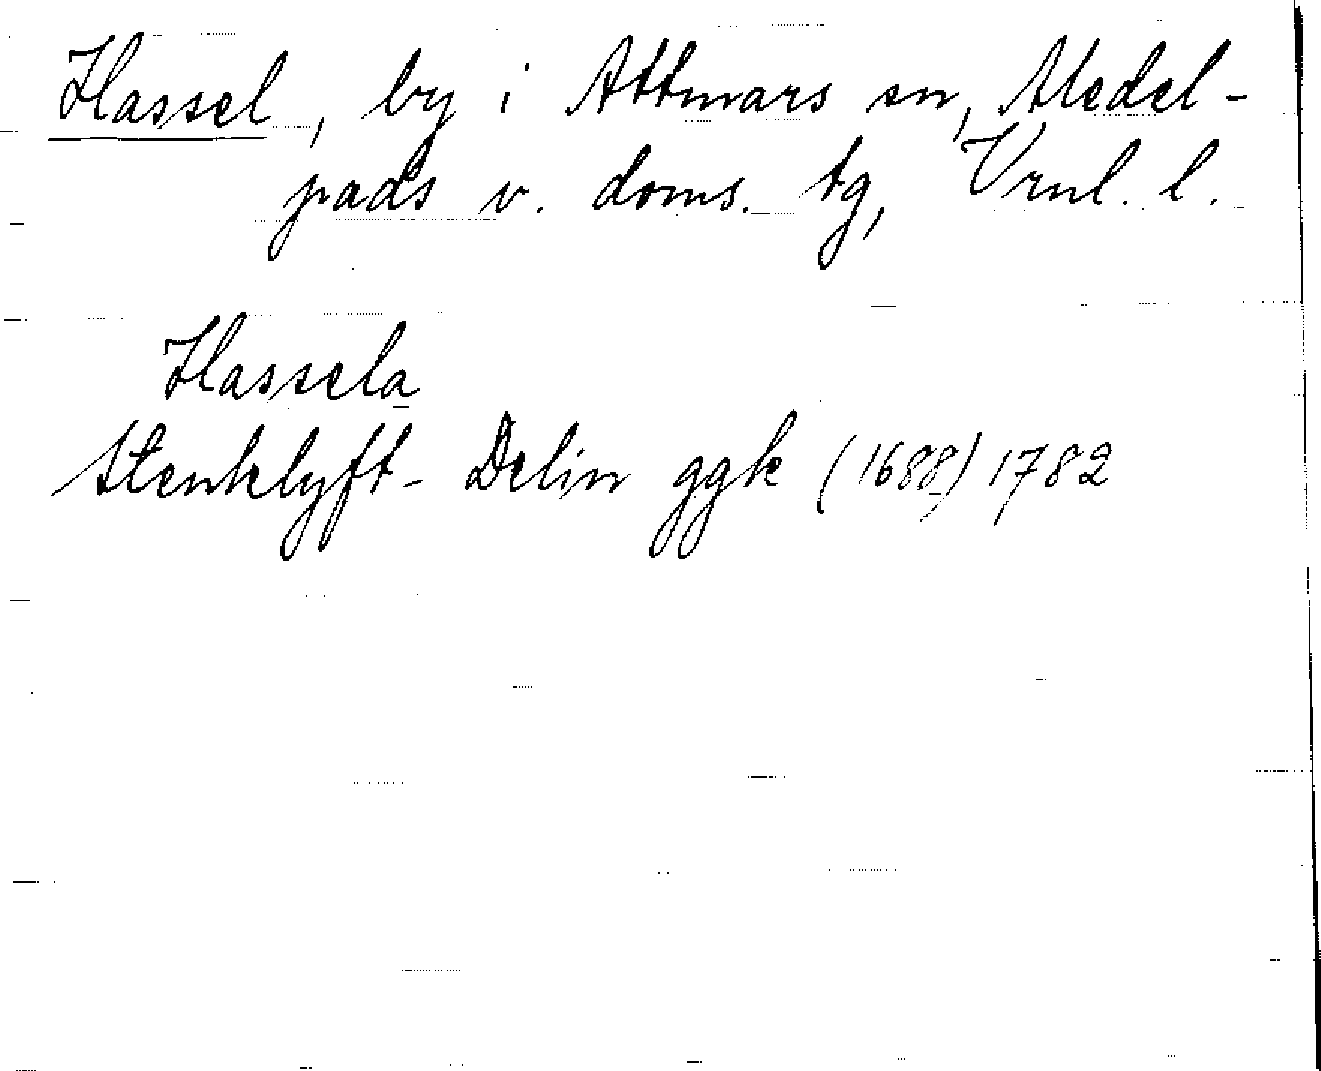 Hassel, by i Attmars sn, Medel-
pads v. doms. tg, Vrnl. l.
Hassela
Stenklyft- Delin ggk (1688) 1782